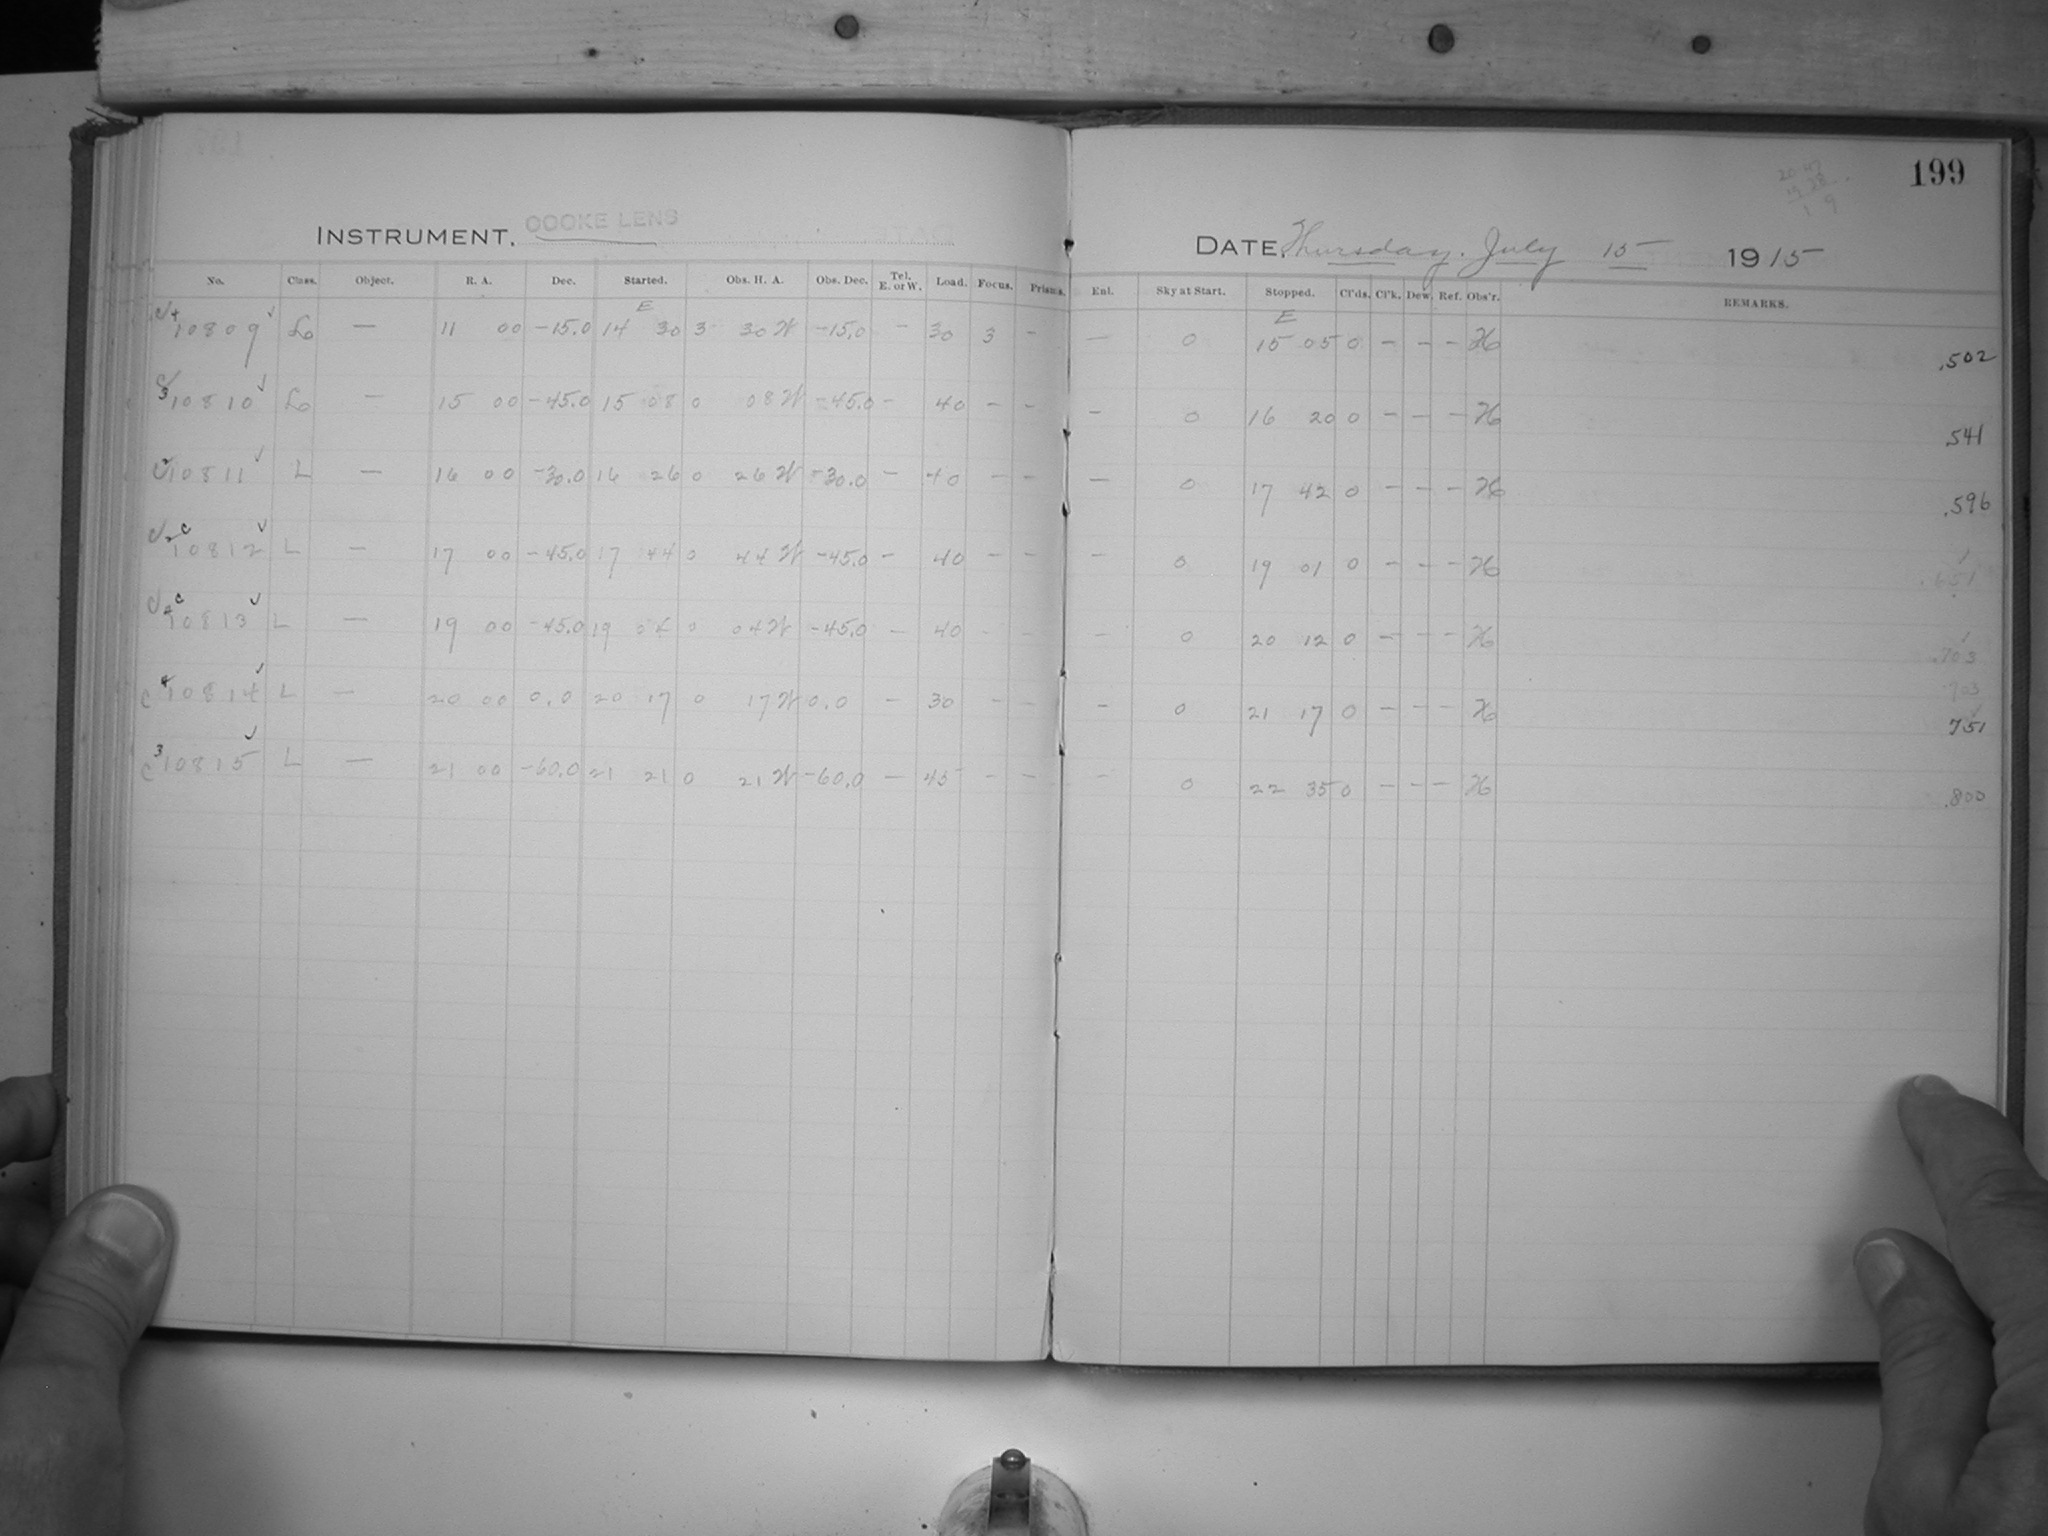 199
20 47
19 28
1 9
INSTRUMENT. COOKE LENS
DATE. Thursday. July 15 1915
No. Class. Object. R. A. Dec. Started. Obs. H. A. Obs. Dec. Tel. E. or W. Load. Focus. Prisms. Enl. Sky at Start. Stopped. Cl'ds. Cl'k. Dew. Ref. Obs'r. REMARKS.
E E
4 10809 Lo — 11 00 -15.0 14 30 3 30 W -15.0 - 30 3 - — 0 15 05 0 - - - H .502
3 10810 Lo — 15 00 -45.0 15 08 0 08 W -45.0 - 40 - - - 0 16 20 0 - - - H .541
10811 L — 16 00 -30.0 16 26 0 26 W -30.0 - 40 - - — 0 17 42 0 - - - H .596
2 c 10812 L — 17 00 -45.0 17 44 0 44 W -45.0 - 40 - - - 0 19 01 0 - - - H .651
4 c 10813 L — 19 00 -45.0 19 04 0 04 W -45.0 - 40 - - - 0 20 12 0 - - - H .703
703
c 4 10814 L — 20 00 0.0 20 17 0 17 W 0.0 - 30 - - - 0 21 17 0 - - - H 751
c 3 10815 L — 21 00 -60.0 21 21 0 21 W -60.0 - 45 - - - 0 22 35 0 - - - H .800